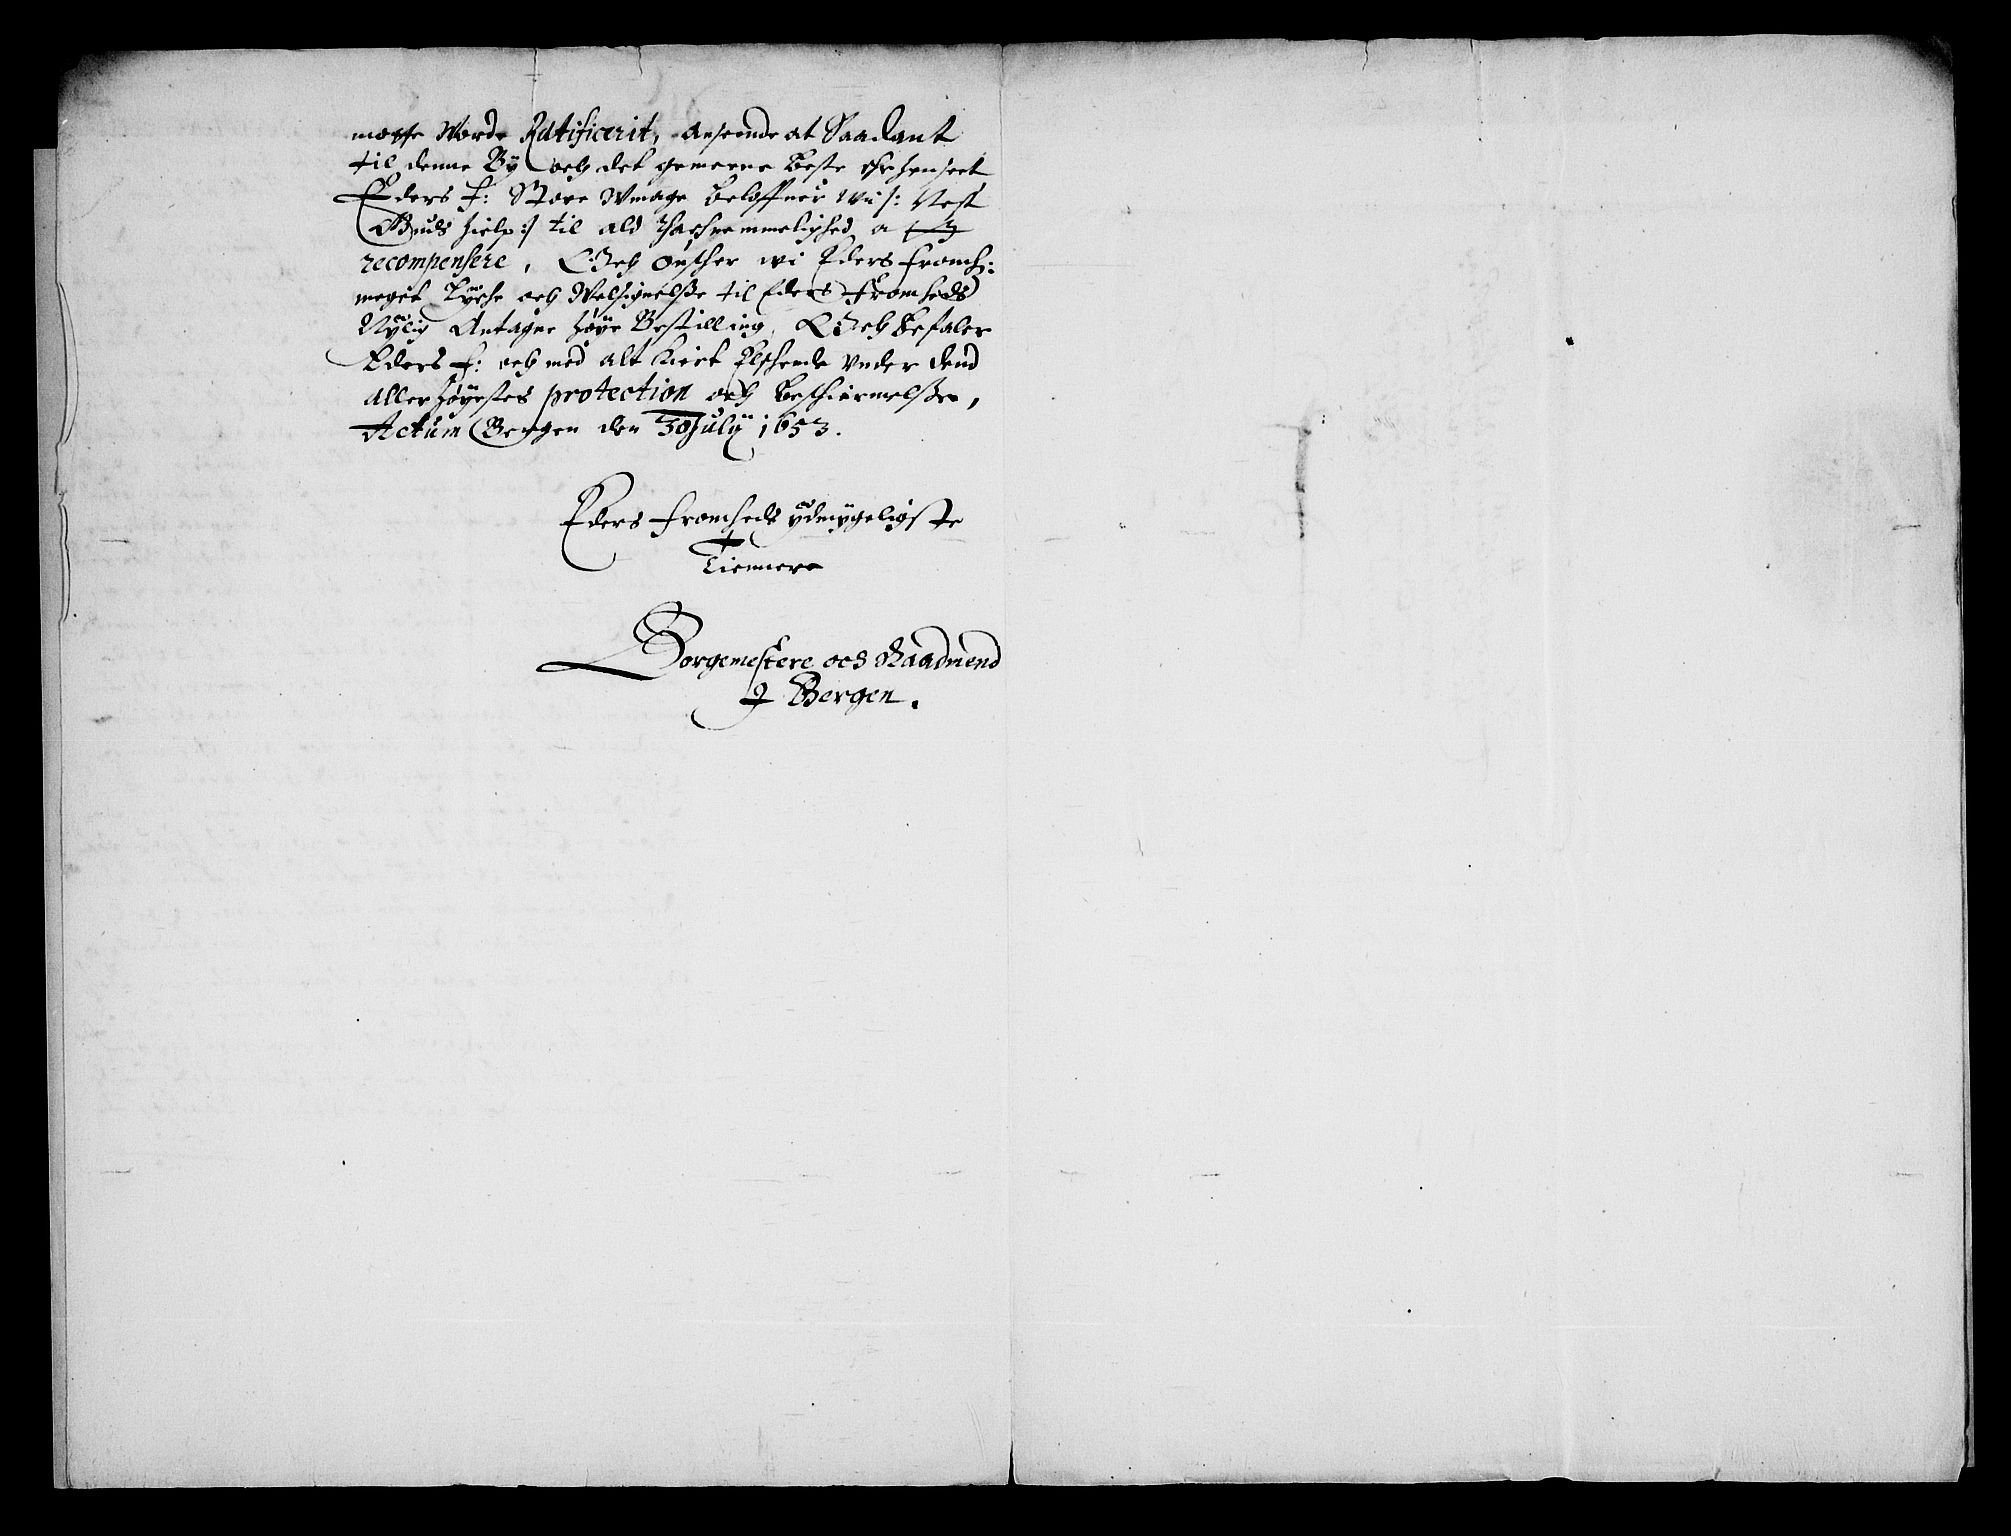 motte Worde Ratificerit, Anseende at Saadant
til denne By och det gemeene beste er henseet
Eders f: Store Wmage beloffuer wii /: Nest
Guds hielp :/ til ald tachnemmelighed a
recompensere, Och ønscher wi Eders fromh:
meget Lyche och Welsignelsse til Eders Fromheds
Nylig Antagne høye Bestilling, Och befaler
Eders f: och med alt kiert Elschende vnder dend
allerhøyestes protection och beschiermelsse,
Actum Bergen den 30 July 1653.
Eders fromheds ydmygeligste
Tiennere
Borgemestere och Raadmend
J Bergen.